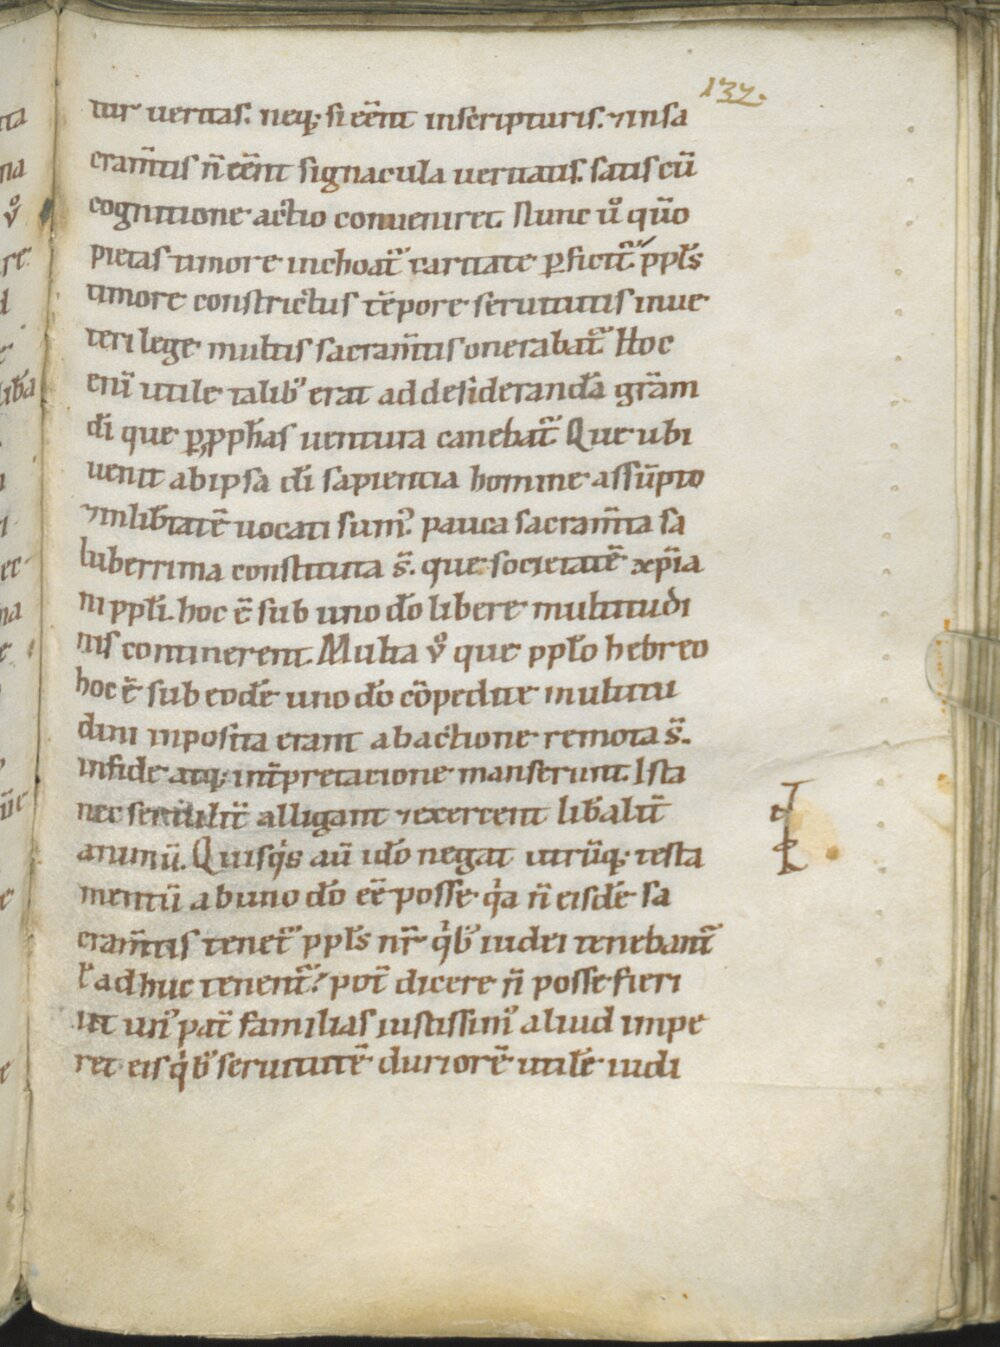 132.
tur ueritas. neq; si eēnt inscripturis. ⁊ insa
cram̄tis n̄ eēnt signacula ueritatis. satis cū
cognitione actio conueniret. Nunc ů qūo
pietas timore inchoat᷑ caritate ꝑficit᷑. ppl̄s
timore constrictus tēpore seruitutis inue
teri lege multis sacram̄tis onerabat᷑. Hoc
enī utile talib; erat addesiderandā grām
dī que ꝑ ꝓph̄as uentura canebat᷑. Que ubi
uenit abipsa dī sapientia homine assūpto
⁊ inlib̄tatē uocati sum᷒. pauca sacram̄ta sa
luberrima constituta s̄. que societatē xp̄ia
ni ppl̄i. hoc ē sub uno dō libere multitudi
nis continerent. Multa v̊ que ppl̄o hebreo
hoc ē sub eodē uno dō cōpedite multitu
dini inposita erant abactione remota s̄.
infide atq; int̄pretacione manserunt. Ista
nec seruilit᷑ alligant ⁊ exercent lib̄alit᷑
animū. Quisq̇s aū idō negat utrūq; testa
mentū abuno dō eē posse. q̇a n̄ eisdē sa
cram̄tis tenet᷑ ppl̄s nr̄ q̇b; iudei tenebant᷑
ł adhuc tenent᷑. pot̄ dicere n̄ posse fieri
ut un᷒ pat̄ familias iustissim᷒ aliud impe
ret eis q̇b; seruitutē duriorē utilē iudi